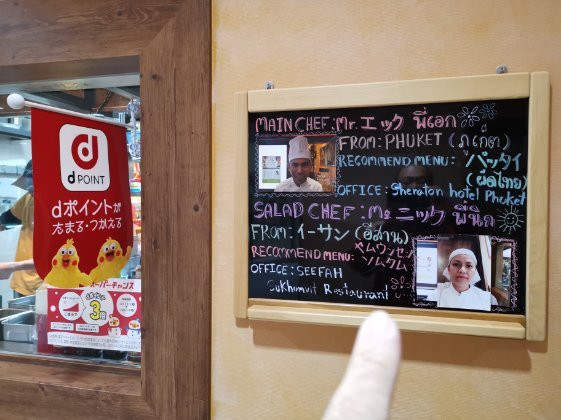 d
d POINT
dポイントが
たまる・つかえる
スーパーチャンス
3倍
MAIN CHEF:Mr.エック พี่เอก
FROM:PHUKET (ภูเก็ต)
RECOMMEND MENU: パッタイ
(ผัดไทย)
OFFICE: Sheraton hotel Phuket
SALAD CHEF:Ms ニック พี่นิก
FROM: イーサン (อีสาน)
RECOMMEND MENU: ヤムウンセン
ソムタム
OFFICE: SEEFAH
Sukhumvit Restaurant